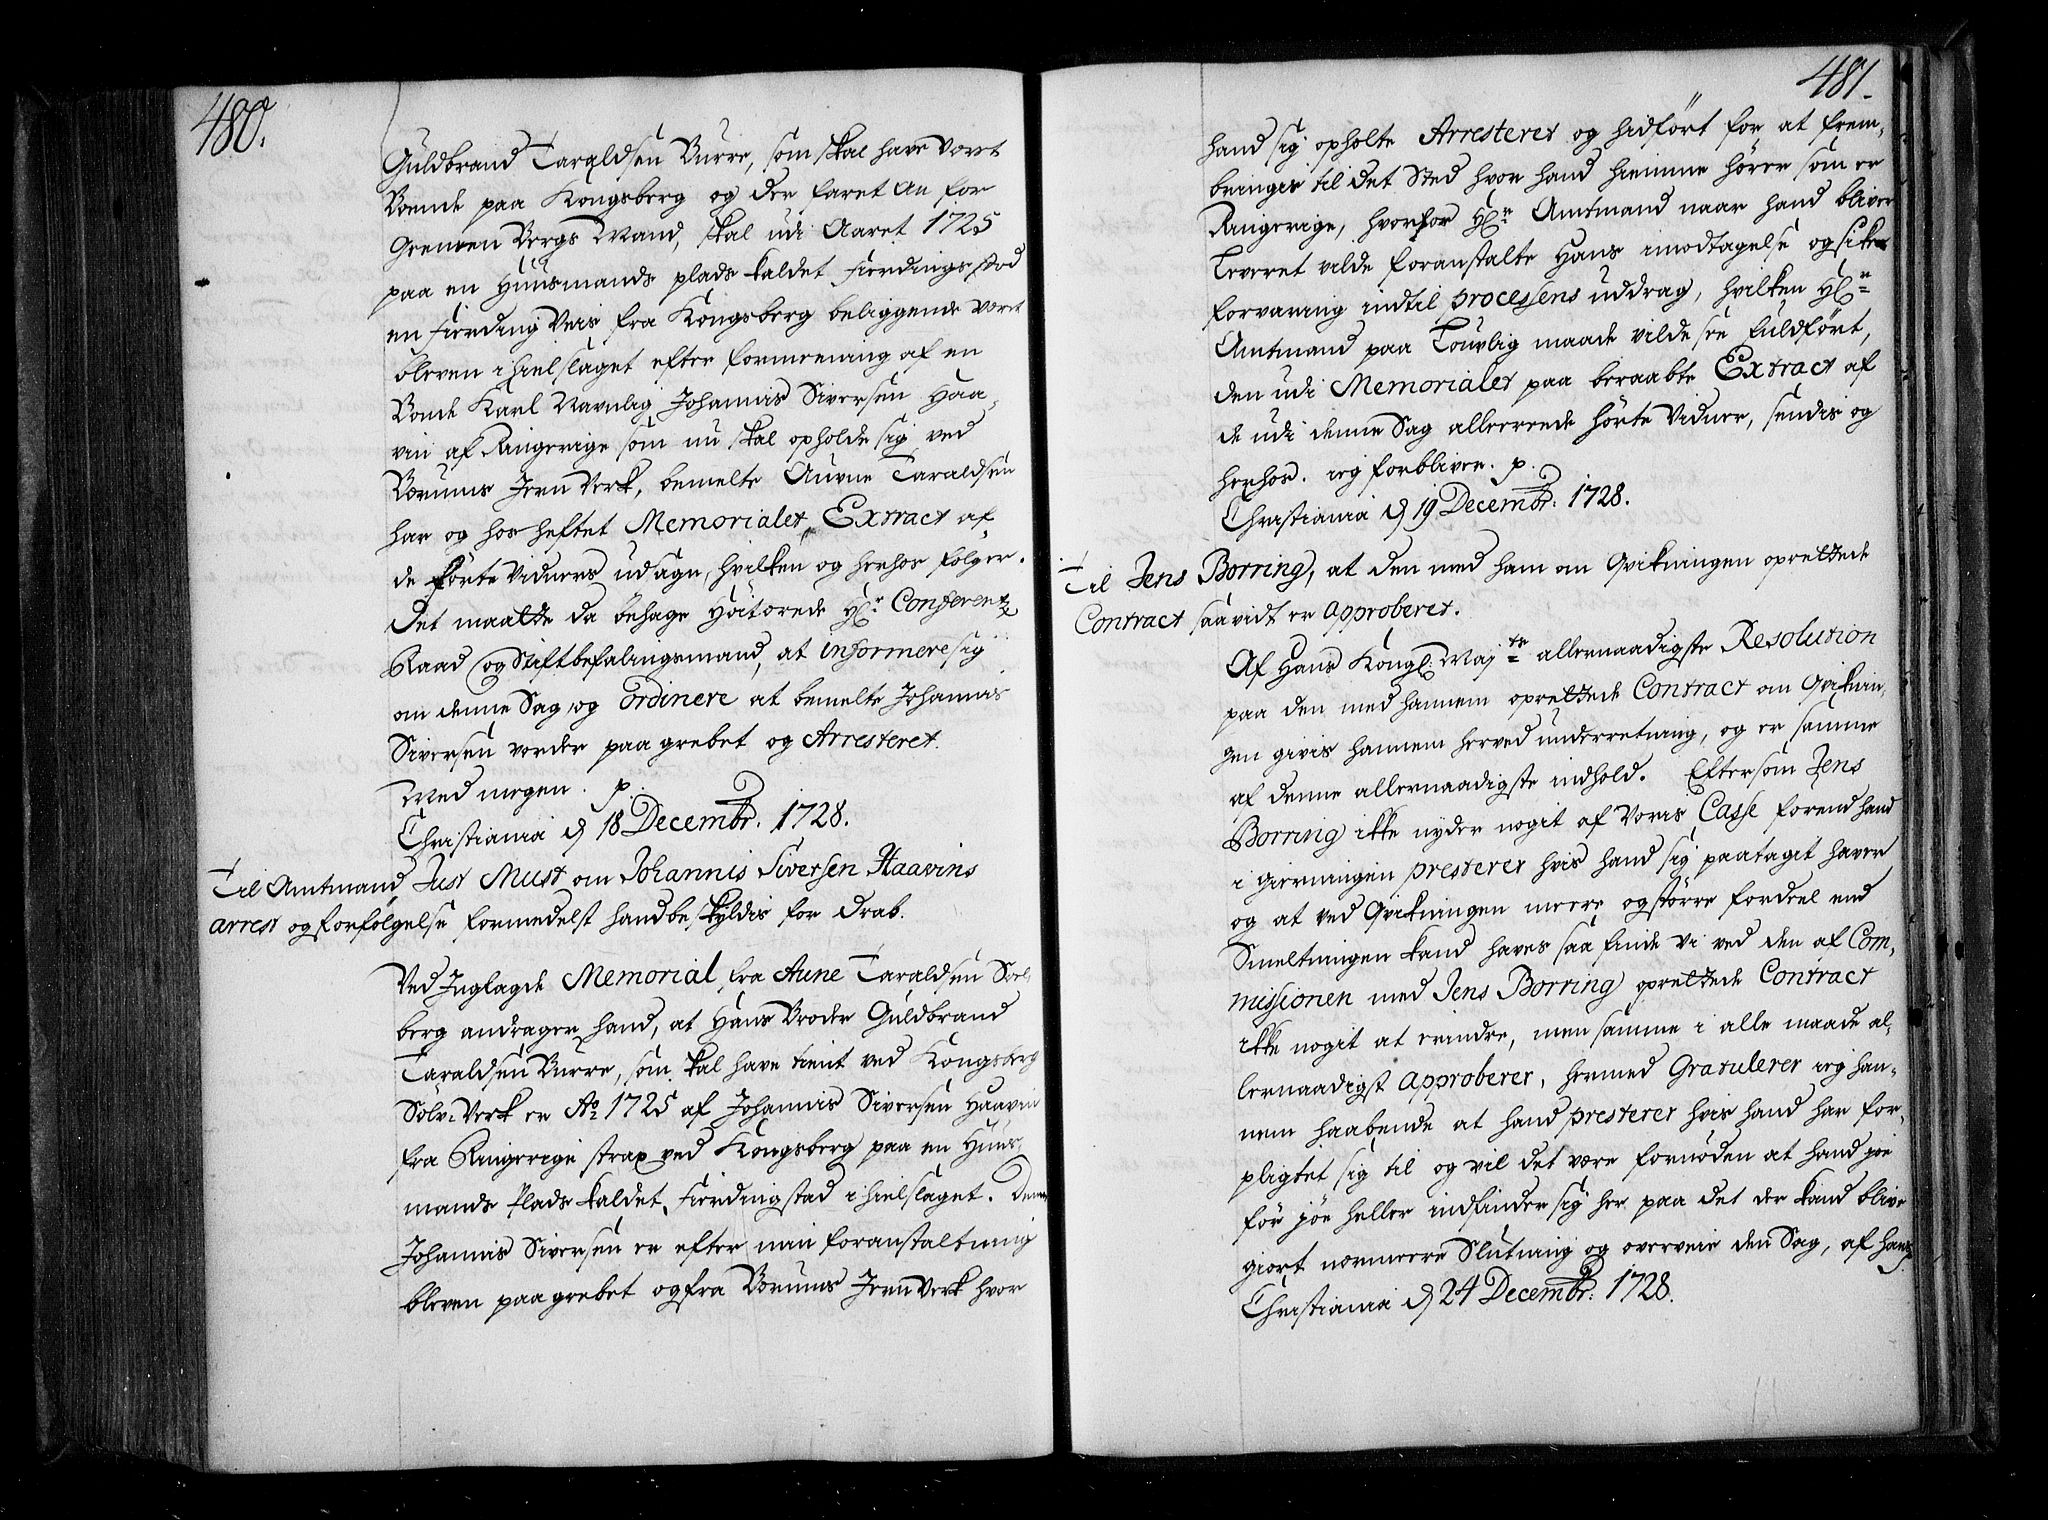 480.
Guldbrand Taraldsen Burre, som skal have været
Boende paa Kongsberg og der faret an for
Gemeen Bergs Mand, skal udi Aaret 1725
paa en Huusmands plads kaldet Fierdingstad
en Fierding Veis fra Kongsberg beliggende være
bleven ihielslaget efter formeening af en
Bonde Karl Navnlig Johannis Siversen Haa-
vin af Ringerige som nu skal opholde sig ved
Bærums Jern Verk, bemelte Auvne Taraldsen
har og hos heftet Memorialet, Extract af
de förte Vidners udsagn, hvilken og herhos følger.
Det maatte da behage Høitærede Hr. Conferentz
Raad og Stiftbefalingsmand, at informere sig
om denne Sag, og ordinere at bemelte Johannis
Siversen vorder paagrebet og Arresteret.
Med megen. p.
Christiania d 18 Decembr. 1728.
Til Amtmand Just Must om Johannis Siversen Haavins
arrest og forfølgelse formedelst hand beskyldis for drab.
Ved Indlagde Memorial, fra Aune Taraldsen Sol-
berg andrager hand, at Hans Broder Guldbrand
Taraldsen Burre, som skal have tient ved Kongsberg
Sølv-Verk er Ao 1725 af Johannis Siversen Haavin
fra Ringerige strax ved Kongsberg paa en Huus-
mands Plads kaldet Fierdingstad ihielslaget. Denne
Johannis Siversen er efter min foranstaltning
bleven paagrebet og fra Bærums Jern Verk hvor
481.
hand sig opholte Arresteret og hidført for at frem-
bringis til det Sted hvor hand hiemme hører som er
Ringerige, hvorfor Hr. Amtmand naar hand bliver
Leveret vilde foranstalte Hans imodtagelse og sikker
forvaring indtil processens uddrag, hvilken Hr.
Amtmand paa Louvlig maade vilde see fuldført,
den udi Memorialet paa beraabte Extract af
de udi denne Sag allereede hörte Vidner, sendis og
herhos. ieg forbliver. p.
Christiania d 19 Decembr. 1728.
Til Jens Borring, at den med ham om Qvikningen oprettede
Contract saavidt er approberet.
Af Hans Kongl: Majts allernaadigste Resolution
paa den med hannem oprettede Contract om Qviknin-
gen givis hannem herved underretning, og er samme
af denne allernaadigste indhold. Eftersom Jens
Borring ikke nyder nogit af Voris Casse forend hand
i gierningen presterer hvis hand sig paataget haver
og at ved Qvikningen meere og større fordeel end
Smeltningen kand haves saa finde Vi ved den af Com-
missionen med Jens Borring oprettede Contract
ikke nogit at erindre, men samme i alle maade al-
lernaadigst approberer, hermed Gratulerer ieg han-
nem haabende at hand presterer hvis hand har for-
pligtet sig til og vil det være fornøden at hand jöe
för jöe heller indfinder sig her paa det der kand blive
giort nærmeere Slutning og overveie den Sag, af Hans.
Christiania d 24 Decembr: 1728.